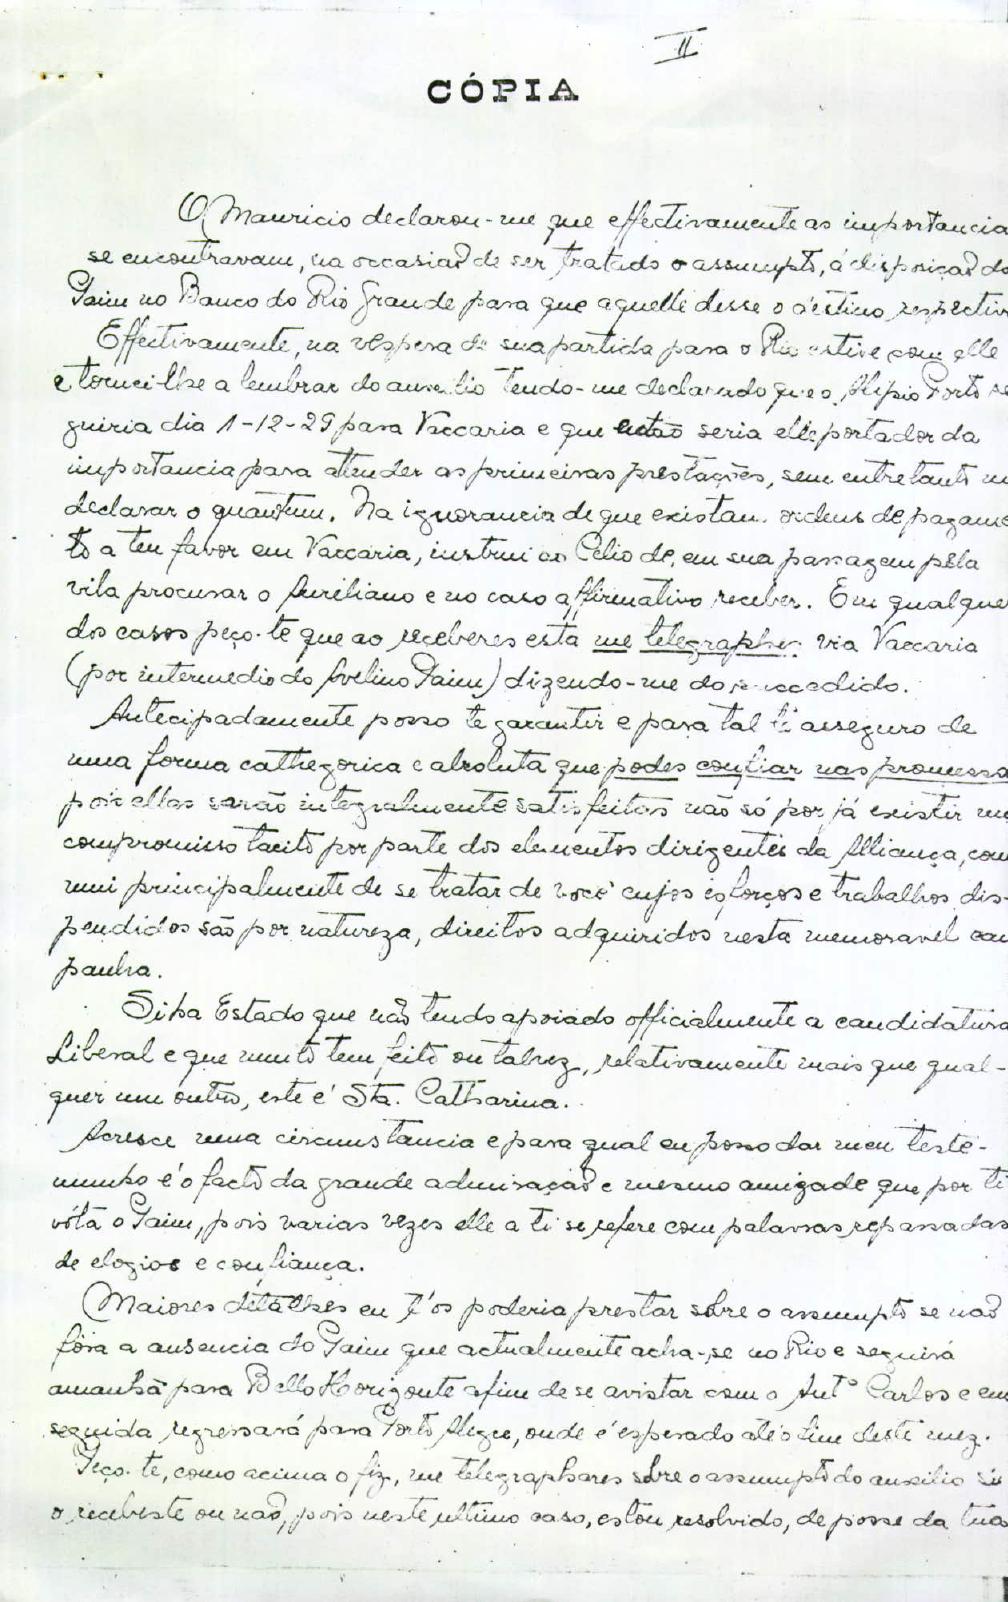 II
CÓPIA
O Mauricio declarou-me que effectivamente as importancia
se encontravam, na occasião de ser tratado o assumpto, á disposição do
Paim no Banco do Rio Grande para que aquelle desse o destino respectiv
Effectivamente, na vespera de sua partida para o Rio estive com elle
e tornei-lhe a lembrar do auxilio tendo-me declarado que o Alipio Porto se
guiria dia 1-12-29 para Vaccaria e que então seria elle portador da
importancia para attender as primeiras prestações, sem entretanto m
declarar o quantum. Na ignorancia de que existam ordens de pagame
to a teu favor em Vaccaria, instrui ao Celio de, em sua passagem pela
vila procurar o Aureliano e no caso affirmativo receber. Em qualque
dos casos peço-te que ao receberes esta me telegraphes via Vaccaria
(por intermedio do Avelino Paim) dizendo-me do succedido.
Antecipadamente posso te garantir e para tal te asseguro de
uma forma cathegorica e absoluta que podes confiar nas promessa
pois ellas serão integralmente satisfeitas não só por já existir um
compromisso tacito por parte dos elementos dirigentes da Alliança, com
mui principalmente de se tratar de você cujos esforços e trabalhos dis-
pendidos são por natureza, direitos adquiridos nesta memoravel cam
panha.
Si ha Estado que não tendo apoiado officialmente a candidatura
Liberal e que muito tem feito ou talvez, relativamente mais que qual-
quer um outro, este é Sta. Catharina.
Acresce uma circumstancia e para qual eu posso dar meu teste-
munho é o facto da grande admiração e mesmo amizade que por ti
vóta o Paim, pois varias vezes elle a ti se refere com palavras repassadas
de elogios e confiança.
Maiores detalhes eu t'os poderia prestar sobre o assumpto se não
fôra a ausencia do Paim que actualmente acha-se no Rio e seguirá
amanhã para Bello Horizonte afim de se avistar com o Antº Carlos e em
seguida regressará para Porto Alegre, onde é esperado até o fim deste mez.
Peço-te, como acima o fiz, me telegraphares sobre o assumpto do auxilio si
o recebeste ou não, pois neste ultimo caso, estou resolvido, de posse da tua